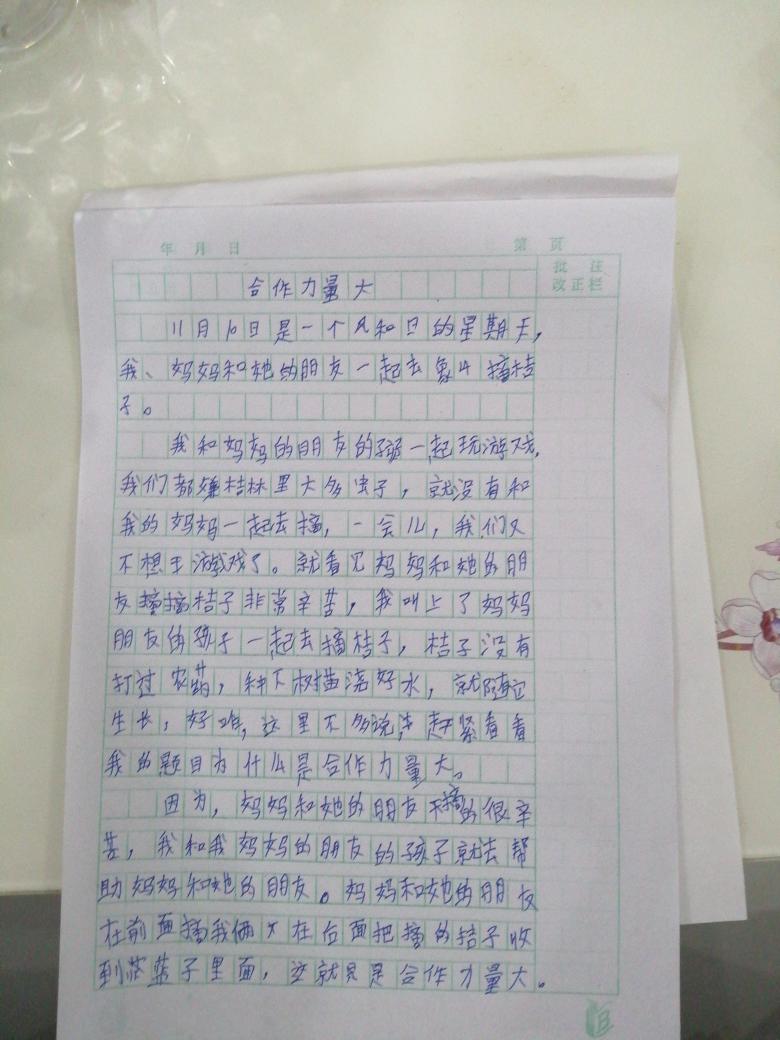 年 月 日 第 页
批 注
改正栏
合作力量大
11月10日是一个风和日的星期天,
我、妈妈和她的朋友一起去象山摘桔
子。
我和妈妈的朋友的孩一起玩游戏,
我们都嫌桔林里大多虫子,就没有和
我的妈妈一起去摘,一会儿,我们又
不想王游戏了。就看见妈妈和她的朋
友摘桔子非常辛苦,我叫上了妈妈
朋友的孩子一起去摘桔子,桔子没有
打过农药,种下树苗浇好水,就随它
生长,好啦,这里不多说,赶紧看看
我的题目为什么是合作力量大。
因为,妈妈和她的朋友摘的很辛
苦,我和我妈妈的朋友的孩子就去帮
助妈妈和她的朋友。妈妈和她的朋友
在前面摘我俩在后面把摘的桔子收
到篮子里面,这就是合作力量大。